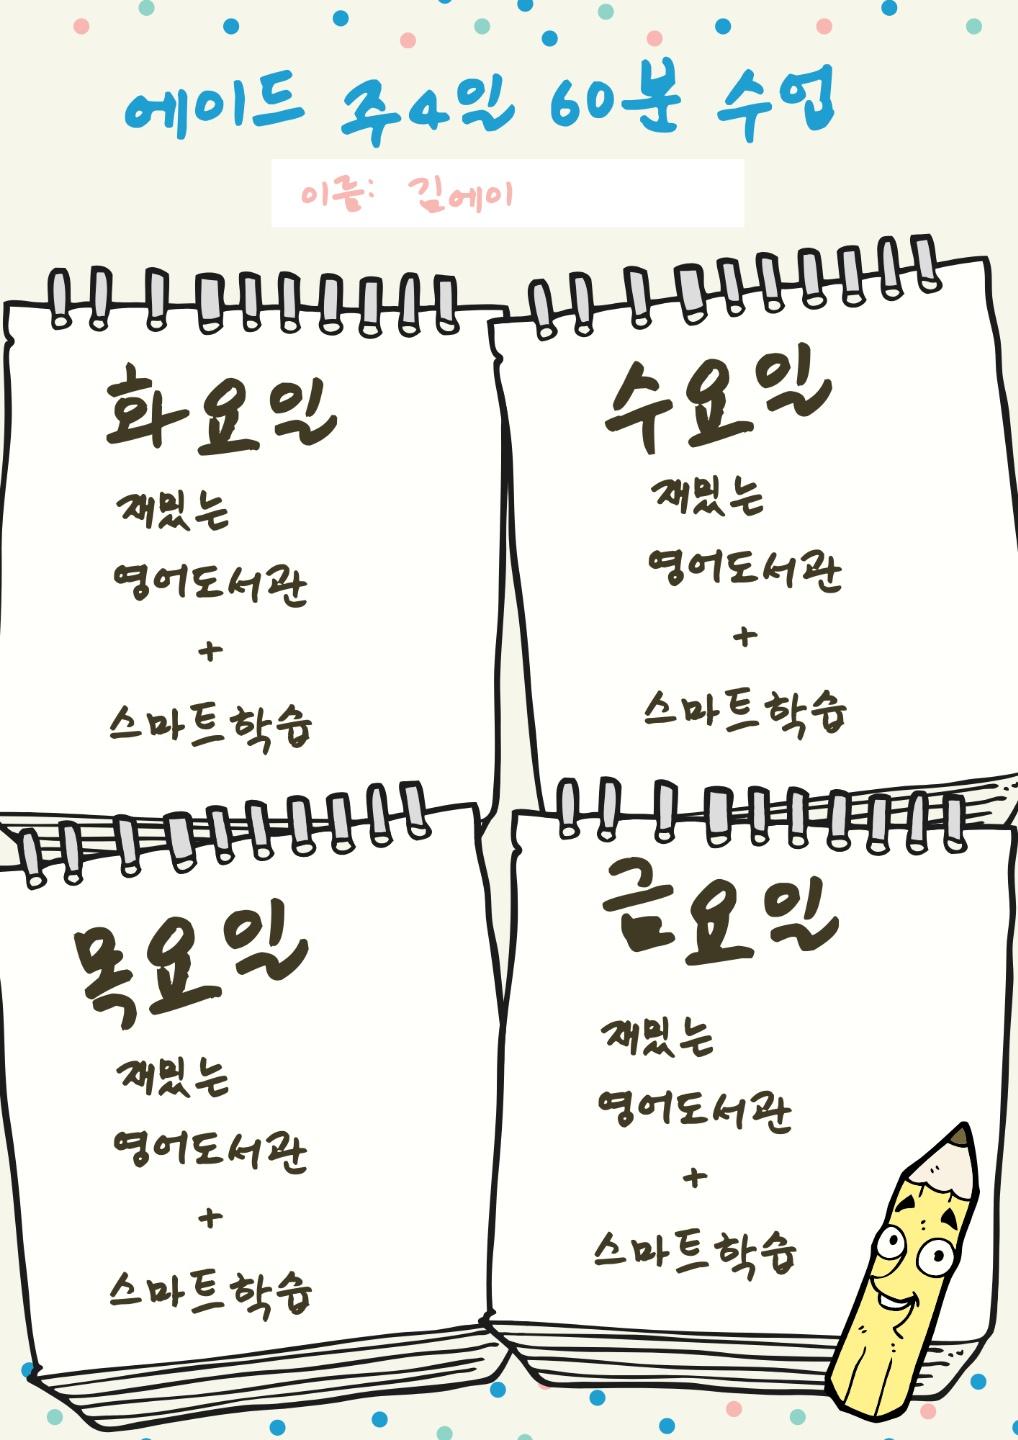 에이드 주4일 60분 수업
이름: 김에이
화요일
재밌는
영어도서관
+
스마트학습
수요일
재밌는
영어도서관
+
스마트학습
목요일
재밌는
영어도서관
+
스마트학습
금요일
재밌는
영어도서관
+
스마트학습